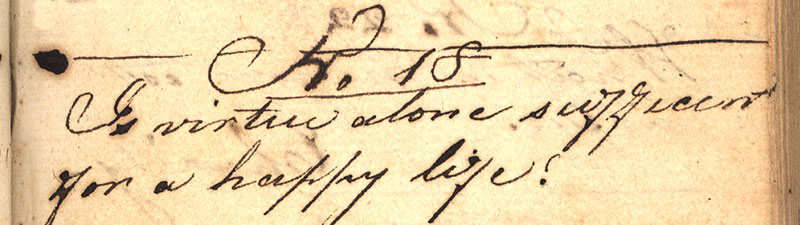 No. 18
Is virtue alone sufficent
for a happy life?